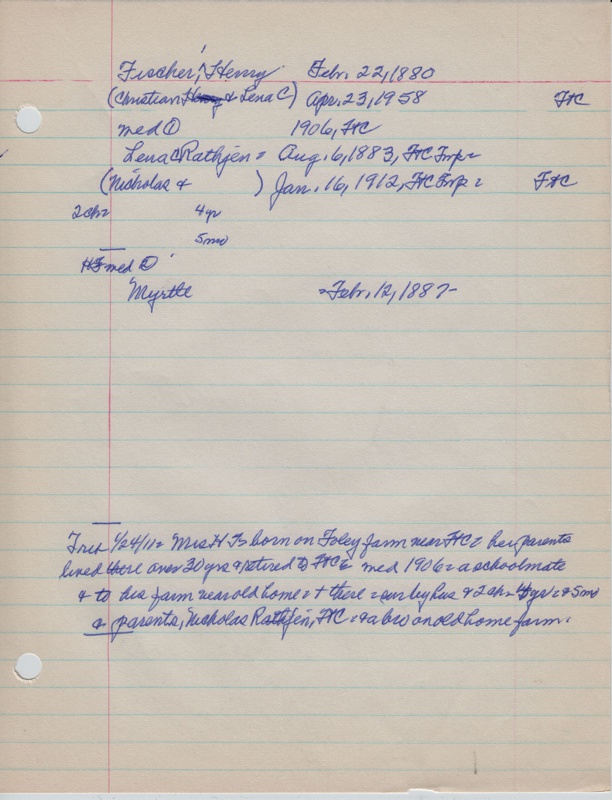 Fischer, Henry Febr. 22, 1880
(Christian Henry & Lena C) Apr. 23, 1958 FtC
med ① 1906, FtC
Lena C Rathjen = Aug. 6, 1883, FtC Twp =
(Nicholas & ) Jan. 16, 1912, FtC Twp = FtC
2 ch = 4 yr
5 mo
HF med ②
Myrtle = Febr. 12, 1887-
1/24/11 = Mrs H F born on Foley farm near FtC = her parents
lived there over 30 yrs & retired to FtC = med 1906 = a schoolmate
& to his farm near old home = + there = sur by hus & 2 ch = 4 yr = & 5 mo
& parents, Nicholas Rathjen, FtC = & a bro on old home farm =